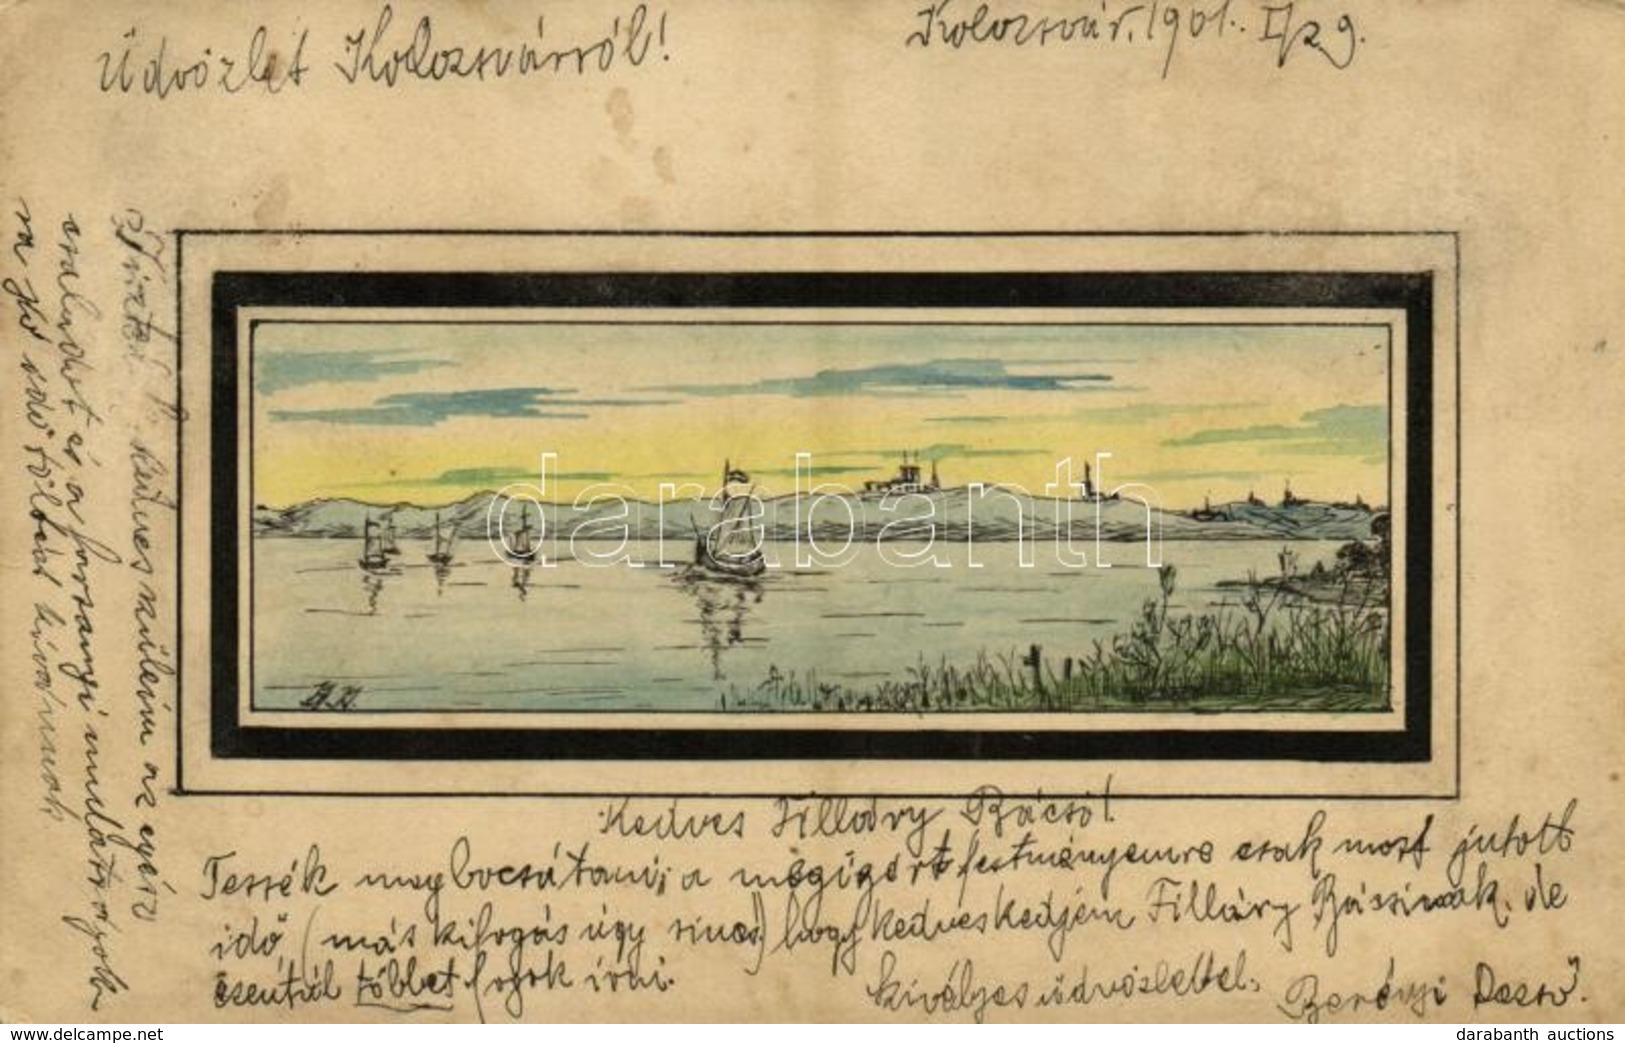 Üdvözlet Kolozsvárról!
Kolozsvár, 1901. II/29.
Tisztel kedves szüleim az egész
családot és a farsangi mulatságok
ra jó idő töltést kívánunk.
H. N.
Kedves Filláry Bácsi!
Tessék megbocsátani, a megigért festményemre csak most jutott
idő, (más kifogás úgy sincs) hogy kedveskedjem Filláry Bácsinak, de
ezentúl többet fogok írni.
kiváljes üdvözlettel,
Berényi Dezső.
darabanth
www.delcampe.net
darabanth auctions